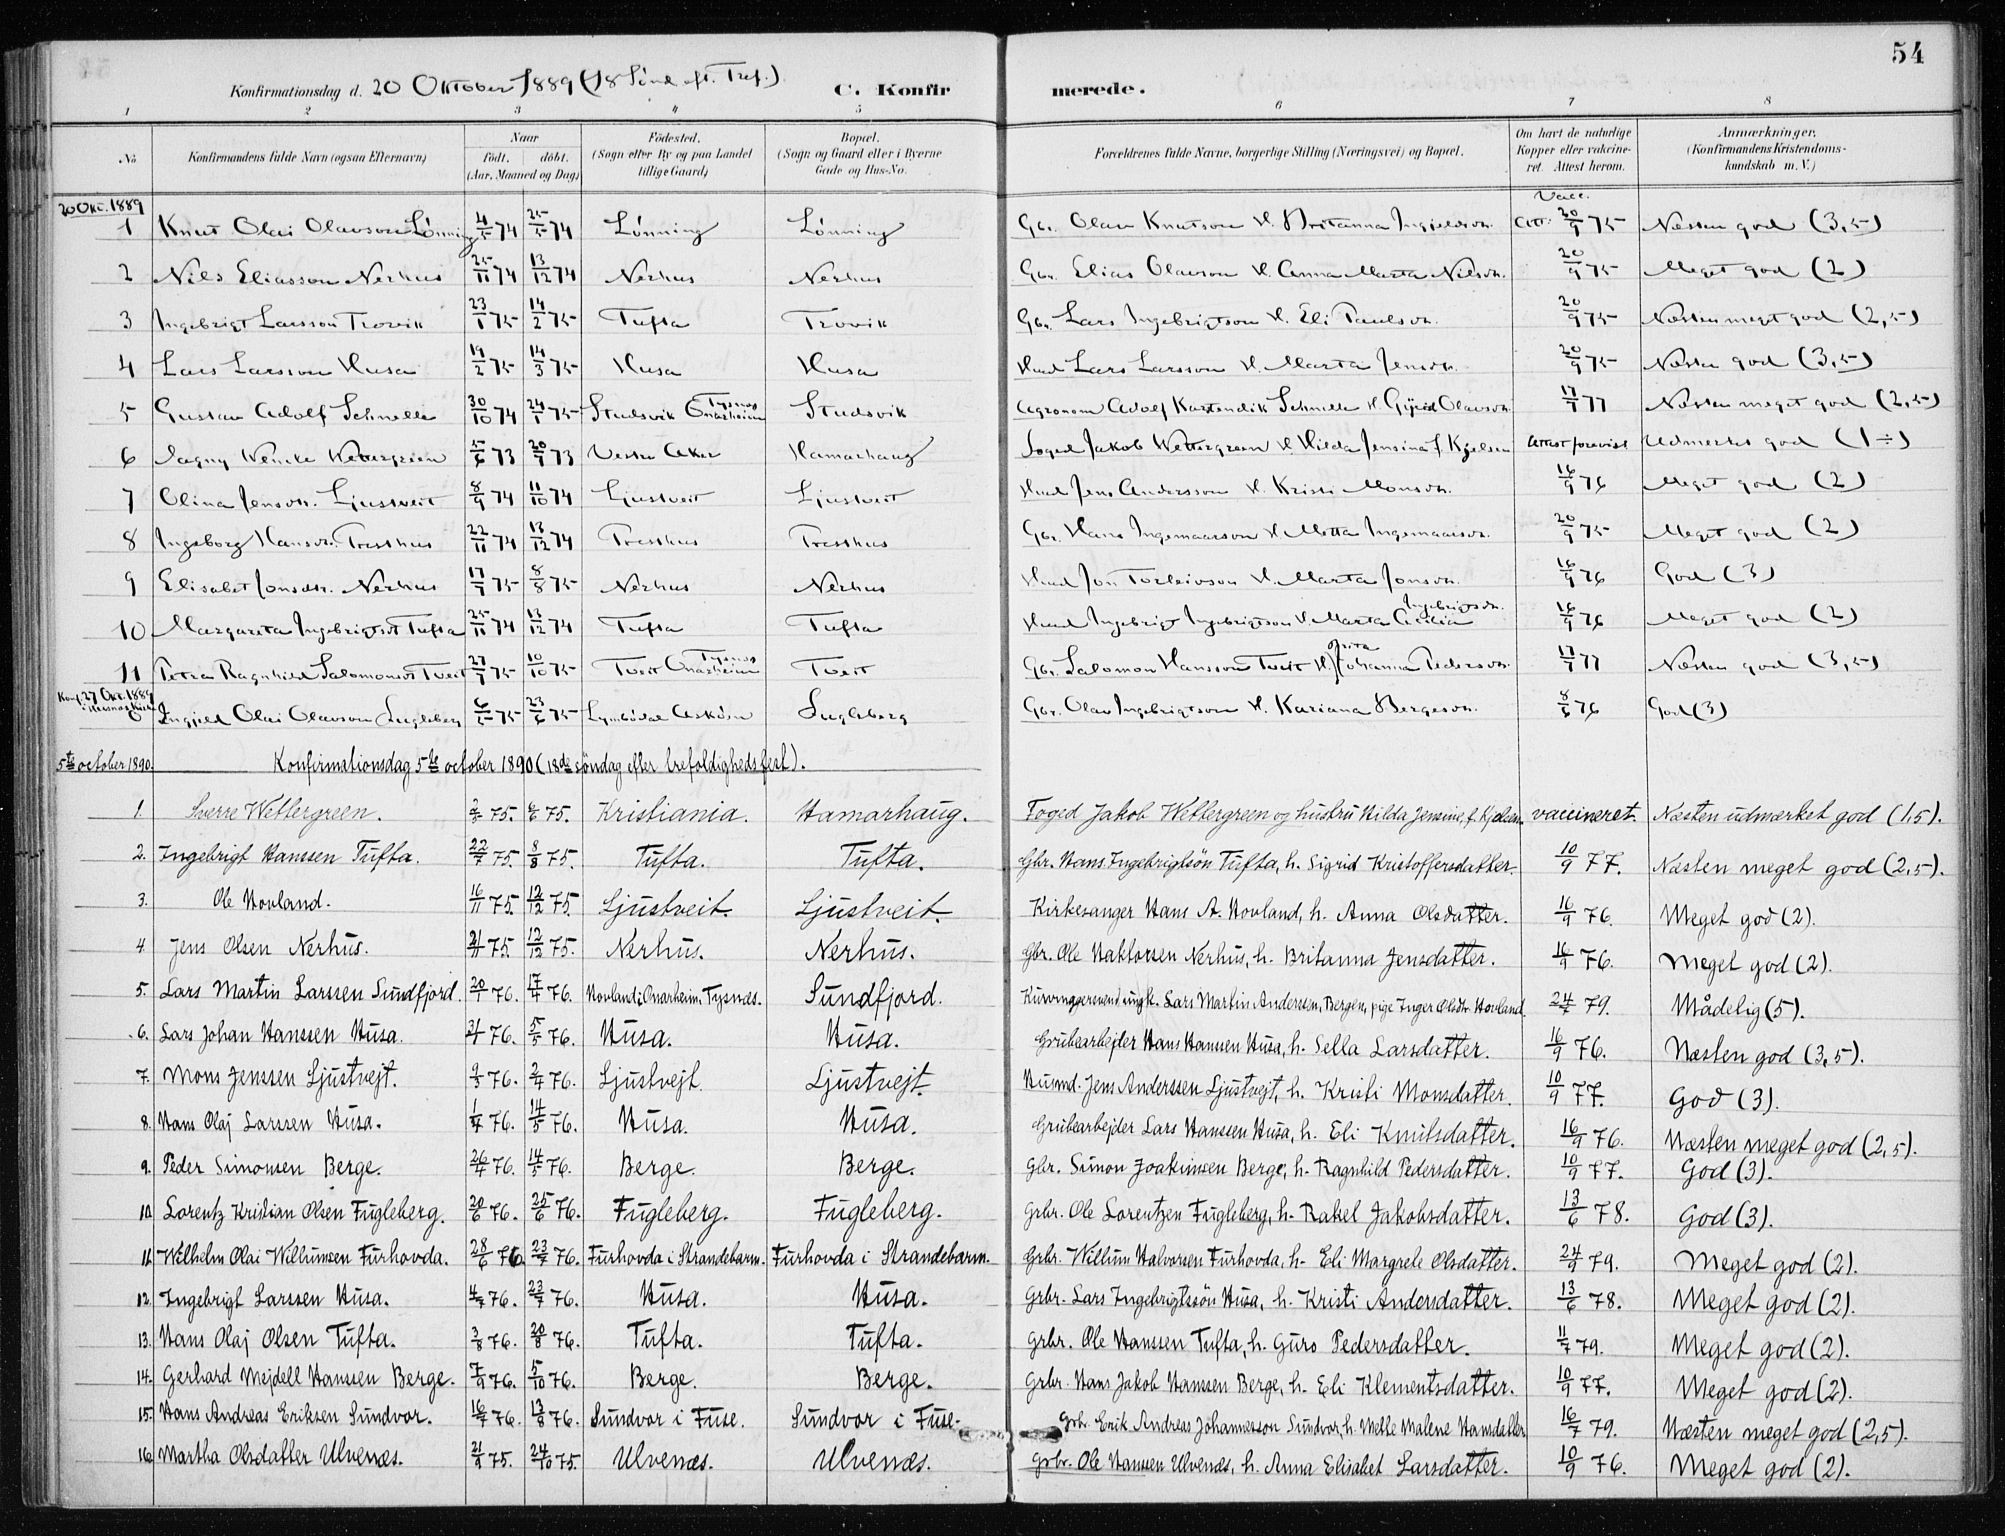 54
Konfirmationsdag d. 20 Oktober 1889 (18 Sönd eft. Tref.) C. Konfirmerede.
1 2 3 4 5 6 7 8
No Konfirmandens fulde Navn (ogsaa Efternavn) Naar födt. döbt. (Aar, Maaned og Dag) Födested. (Sogn eller By og paa Landet tillige Gaard) Bopæl. (Sogn og Gaard eller i Byerne Gade og Hus-No. Forældrenes fulde Navne, borgerlige Stilling (Næringsvei) og Bopæl. Om havt de naturlige Kopper eller vakcineret. Attest herom. Anmærkninger. (Konfirmandens Kristendomskundskab m. V.)
20 Okt. 1889 Vacc.
1 Knut Olai Olavson Lönning 4/5 74 25/5 74 Lönning Lönning Gbr. Olav Knutson H. Britanna Ingjeldsdr. Att: 20/9 75 Næsten god (3,5)
2 Nils Eliasson Nerhus 25/11 74 13/12 74 Nerhus Nerhus Gbr. Elias Olavson H. Anna Marta Nilsdr. 20/9 75 Meget god (2)
3 Ingebrigt Larsson Trovik 23/1 75 14/2 75 Tufta Trovik Gbr. Lars Ingebrigtson H. Eli Paulsdr. 20/9 75 Næsten meget god (2,5)
4 Lars Larsson Husa 19/2 75 14/3 75 Husa Husa Husd Lars Larsson H. Marta Jensdr. 20/9 75 Næsten god (3,5)
5 Gustav Adolf Schnelle 30/10 74 24/1 75 Studsvik Tysnes Onarheim Studsvik Agronom Adolf Karstendik Schnelle H Gjörid Olavsdr. 17/9 77 Næsten meget god (2,5)
6 Dagny Wencke Wettergreen 5/6 73 20/9 73 Vestre Aker Hamarhaug Foged Jakob Wettergreen H Hilda Jensina f. Kjelsen Attest forevist Udmerket god (1÷)
7 Olina Jensdr. Ljustveit 8/9 74 11/10 74 Ljustveit Ljustveit Husd Jens Andersson H. Kristi Monsdr. 16/9 76 Meget god (2)
8 Ingeborg Hansdr. Tresthus 22/11 74 13/12 74 Tresthus Tresthus Gbr. Hans Ingemaarson H Metta Ingemaarsdr. 20/9 75 Meget god (2)
9 Elisabet Jonsdr. Nerhus 17/7 75 8/8 75 Nerhus Nerhus Husd Jon Torleivson H. Marta Jonsdr. 16/9 76 God (3)
10 Margareta Ingebrigtsdr Tufta 25/11 74 13/12 74 Tufta Tufta Husd Ingebrigt Ingebrigtson H. Marta Cicilia Ingebrigtsdr. 16/9 76 Meget god (2)
11 Petra Ragnhild Salomonsdr Tveit 27/7 75 10/10 75 Tveit Tysnes Onarheim Tveit Gbr. Salomon Hansson Tveit H. Brita Johanna Pedersdr. 17/9 77 Næsten god (3,5)
Konf. 27 Okt. 1889 Ingjeld Olai Olavson Fugleberg 6/5 75 23/6 75 Askösn Fugleberg Gbr. Olav Ingebrigtson H. Kariana Bergesdr. 8/6 76 God (3)
5te october 1890. Konfirmationsdag 5te october 1890 (18de söndag efter trefoldighedsfest).
1. Sverre Wettergreen. 2/3 75. 6/6 75. Kristiania. Hamarhaug. Foged Jakob Wettergreen og hustru Hilda Jensine, f. Kjelsen vaccineret. Næsten udmærket god (1,5).
2. Ingebrigt Hanssen Tufta. 22/7 75. 8/8 75. Tufta. Tufta. Gbr. Hans Ingebrigtsön Tufta, h. Sigrid Kristoffersdatter. 10/9 77. Næsten meget god (2,5).
3. Ole Hovland. 16/11 75. 12/12 75. Ljustveit. Ljustveit. Kirkesanger Hans A. Hovland, h. Anna Olsdatter. 16/9 76. Meget god (2).
4 Jens Olsen Nerhus. 21/11 75. 12/12 75. Nerhus. Nerhus. Gbr. Ole Haktorsen Nerhus, h. Britanna Jensdatter. 16/9 76. Meget god (2).
5. Lars Martin Larssen Sundfjord. 20/1 76. 17/4 76. Hovland i Onarheim, Tysnæs. Sundfjord. Kurvmagersvend ungk. Lars Martin Anderssen, Bergen, pige Inger Olsdr. Hovland. 24/7 79. Mådelig (5).
6. Lars Johan Hanssen Husa. 31/1 76. 5/5 76. Husa. Husa. Grubearbejder Hans Hanssen Husa, h. Sella Larsdatter. 16/9 76. Næsten god (3,5).
7. Mons Jenssen Ljustvejt. 9/3 76. 2/4 76. Ljustvejt. Ljustvejt. Husmd. Jens Anderssen Ljustvejt, h. Kristi Monsdatter. 10/9 77. God (3).
8. Hans Olaj Larssen Husa. 1/4 76. 14/5 76. Husa. Husa. Grubearbejder Lars Hanssen Husa, h. Eli Knutsdatter. 16/9 76. Næsten meget god (2,5).
9. Peder Simonsen Berge. 26/4 76. 14/5 76. Berge. Berge. Gbr. Simon Joakimsen Berge, h. Ragnhild Pedersdatter. 10/9 77. God (3).
10 Lorentz Kristian Olsen Fugleberg. 20/6 76. 25/6 76. Fugleberg. Fugleberg. Grbr. Ole Lorentzen Fugleberg, h. Rakel Jakobsdatter. 13/6 78. God (3).
11. Wilhelm Olai Willumsen Furhovda. 28/6 76. 23/7 76. Furhovda i Strandebarm. Furhovda i Strandebarm. Grbr. Willum Halvorsen Furhovda, h. Eli Margrete Olsdatter. 24/9 79. Meget god (2).
12. Ingebrigt Larssen Husa. 4/7 76. 23/7 76. Husa. Husa. Grbr. Lars Ingebrigtssön Husa, h. Kristi Andersdatter. 13/6 78. Meget god (2).
13. Hans Olaj Olsen Tufta. 3/8 76. 20/8 76. Tufta. Tufta. Grbr. Ole Hanssen Tufta, h. Guro Pedersdatter. 11/7 79. Meget god (2).
14. Gerhard Mejdell Hanssen Berge. 7/9 76. 5/10 76. Berge. Berge. Grbr. Hans Jakob Hanssen Berge, h. Eli Klementsdatter. 10/9 77. Meget god (2).
15. Hans Andreas Eriksen Sundvor. 16/7 76. 13/8 76. Sundvor i Fuse. Sundvor i Fuse. Grbr. Erik Andreas Johannesson Sundvor, h. Mette Malene Hansdatter 16/7 79. Næsten meget god (2,5).
16. Martha Olsdatter Ulvenæs. 21/9 75. 24/10 75. Ulvenæs. Ulvenæs. Grbr. Ole Hanssen Ulvenæs, h. Anna Elisabet Larsdatter. 10/9 76. Meget god (2).